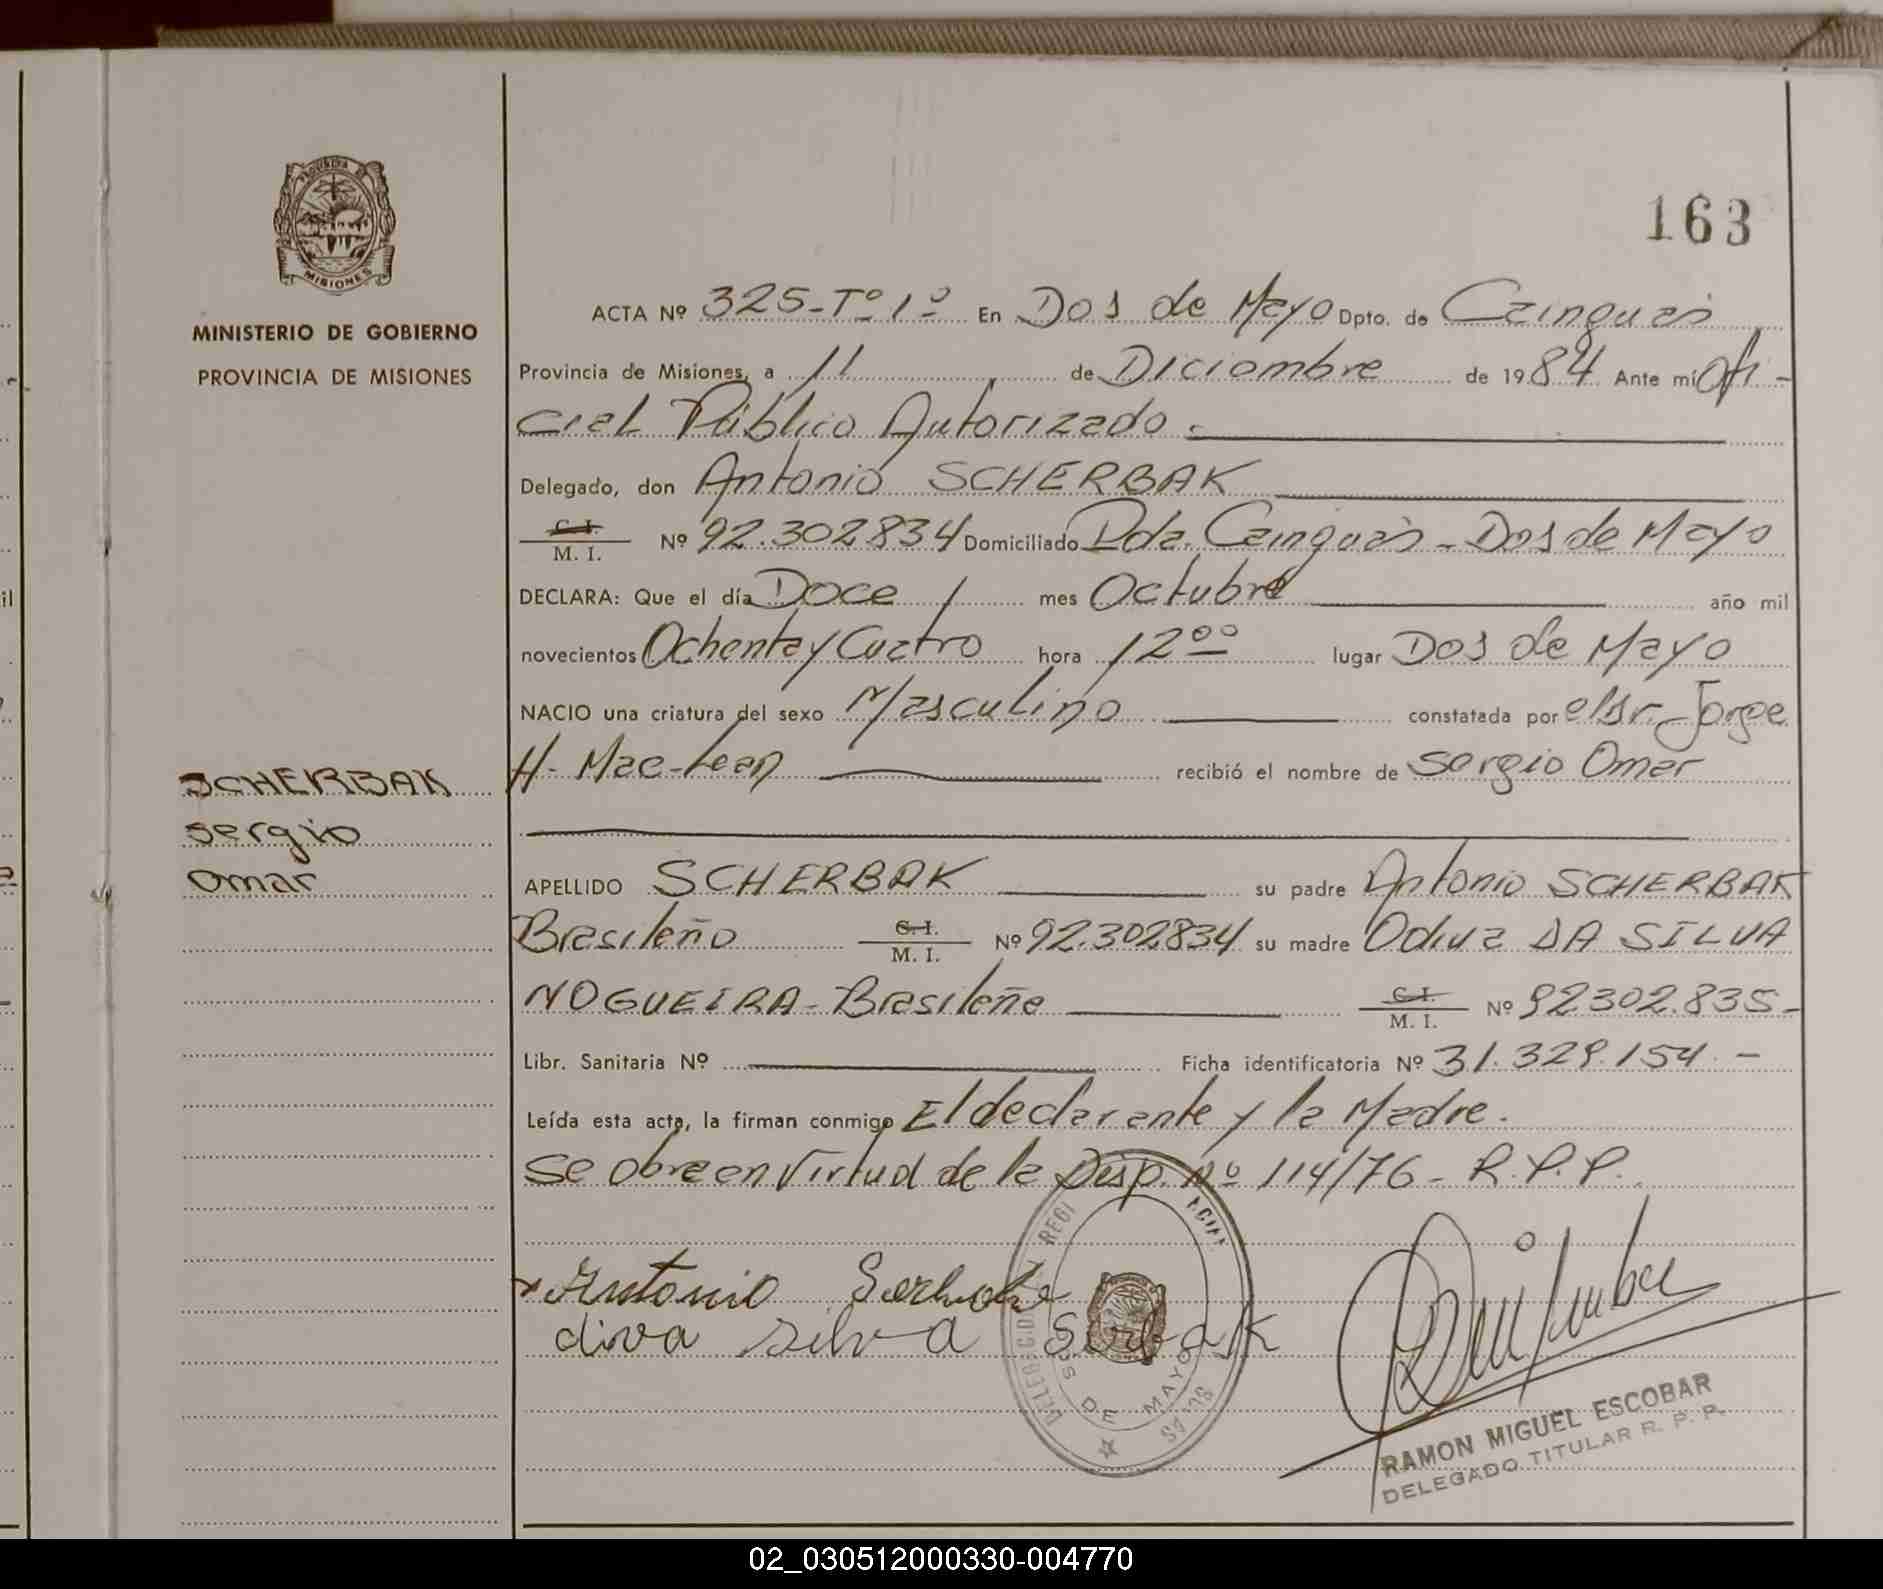 PROVINCIA DE
MISIONES
MINISTERIO DE GOBIERNO
PROVINCIA DE MISIONES
163
ACTA Nº 325-Tº 1º En Dos de Mayo Dpto. de Cainguás
Provincia de Misiones, a 11 de Diciembre de 1984 Ante mí Ofi-
cial Público Autorizado.
Delegado, don Antonio SCHERBAK
C. I.
M. I. Nº 92.302834 Domiciliado Pda. Cainguás - Dos de Mayo
DECLARA: Que el día Doce mes Octubre año mil
novecientos Ochenta y Cuatro hora 12ºº lugar Dos de Mayo
NACIO una criatura del sexo Masculino constatada por el Sr. Jorge
H. Mac-Lean recibió el nombre de Sergio Omar
SCHERBAK
Sergio
Omar
APELLIDO SCHERBAK su padre Antonio SCHERBAK
Brasileño C. I. M. I. Nº 92.302834 su madre Odiva DA SILVA
NOGUEIRA - Brasileña C. I. M. I. Nº 92302.835-
Libr. Sanitaria Nº Ficha identificatoria Nº 31.329.154.-
Leída esta acta, la firman conmigo El declarante y la Madre.
Se obra en Virtud de la Disp. Nº 114/76 - R.P.P.
Antonio
diva silva Serbak
DOS DE MAYO
RAMON MIGUEL ESCOBAR
DELEGADO TITULAR R. P. P.
02_030512000330-004770